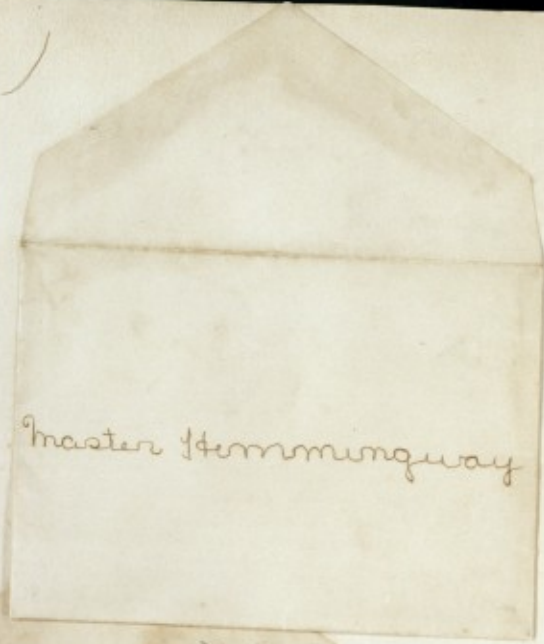 Master Hemmingway